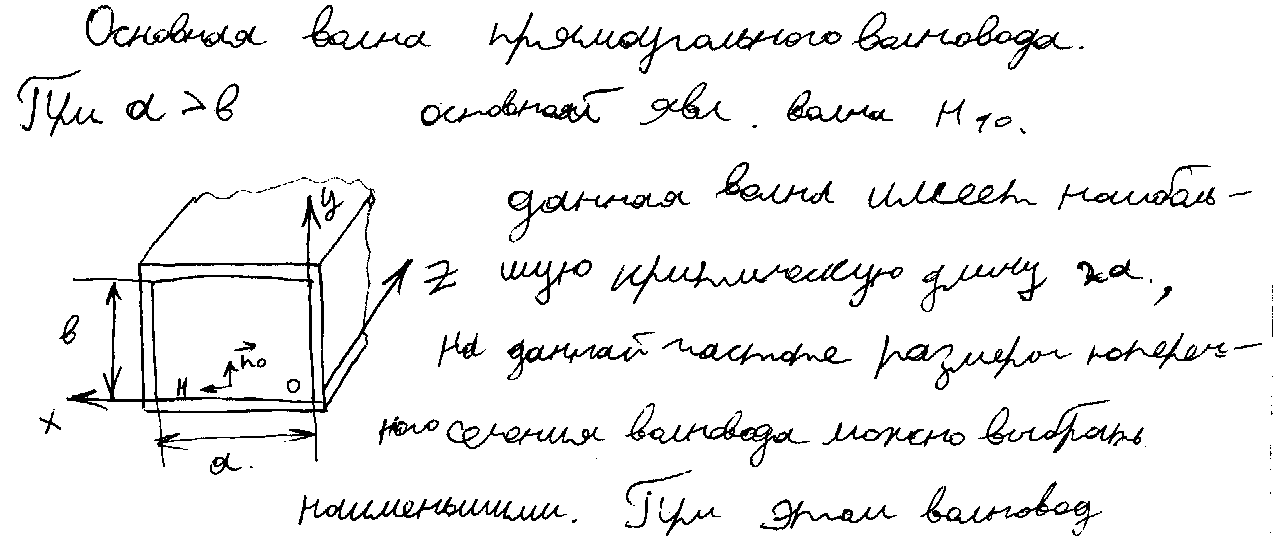 Основная волна прямоугольного волновода.
При a > в основной явл. волна H10.
данная волна имеет наиболь-
шую критическую длину 2a.,
на данной частоте размеры попереч-
ного сечения волновода можно выбрать
наименьшими. При этом волновод
y
z
в
n₀
H
O
x
a.